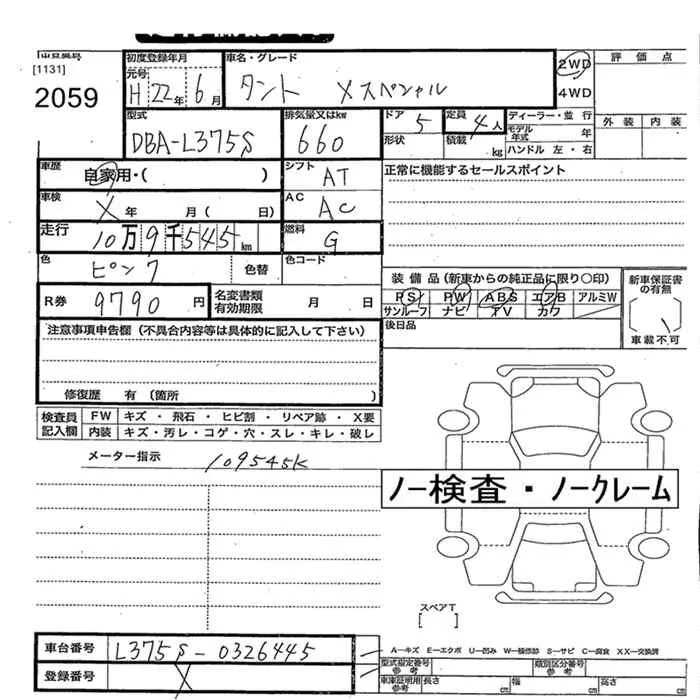 [1131]
2059
初度登録年月
元号
H 22年 6月
車名・グレード
タント Xスペシャル
2WD
4WD
評価点
外装 内装
型式
DBA-L375S
排気量又はkw
660
ドア 5
形状
定員 4人
積載 kg
ディーラー・並行
モデル年式 年
ハンドル 左・右
車歴
自家用・( )
シフト
AT
正常に機能するセールスポイント
車検
X 年 月 ( 日)
AC
AC
走行
10万9千545km
燃料
G
色
ピンク
色替
色コード
装備品(新車からの純正品に限り○印)
PS PW ABS エアB アルミW
サンルーフ ナビ TV カワ
新車保証書の有無
車載不可
R券 9790円
名変書類有効期限 月 日
後日品
注意事項申告欄(不具合内容等は具体的に記入して下さい)
修復歴 有(箇所 )
検査員記入欄
FW キズ・飛石・ヒビ割・リペア跡・X要
内装 キズ・汚レ・コゲ・穴・スレ・キレ・破レ
メーター指示 109545K
ノー検査・ノークレーム
スペアT
[ ]
車台番号 L375S-0326445
登録番号 X
A－キズ E－エクボ U－凹み W－補修跡 S－サビ C－腐食 XX－交換済
型式指定番号
参考
類別区分番号
参考
車庫証明用
参考
長さ cm 幅 cm 高さ cm